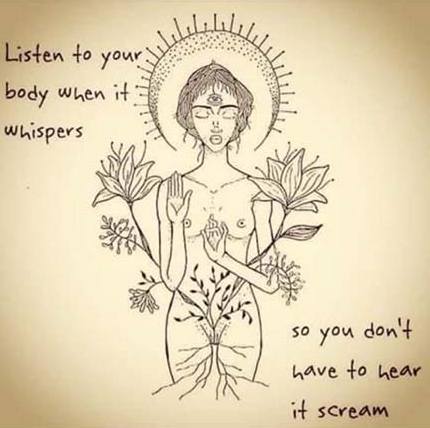 Listen to your
body when it
whispers
so you don't
have to hear
it scream